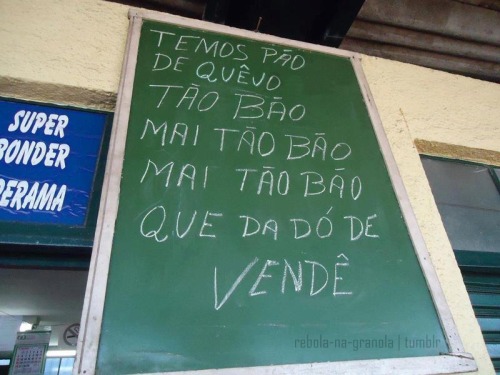 TEMOS PÃO
DE QUÊJO
TÃO BÃO
MAI TÃO BÃO
MAI TÃO BÃO
QUE DA DÓ DE
VENDÊ
SUPER
BONDER
DERAMA
rebola-na-granola | tumblr